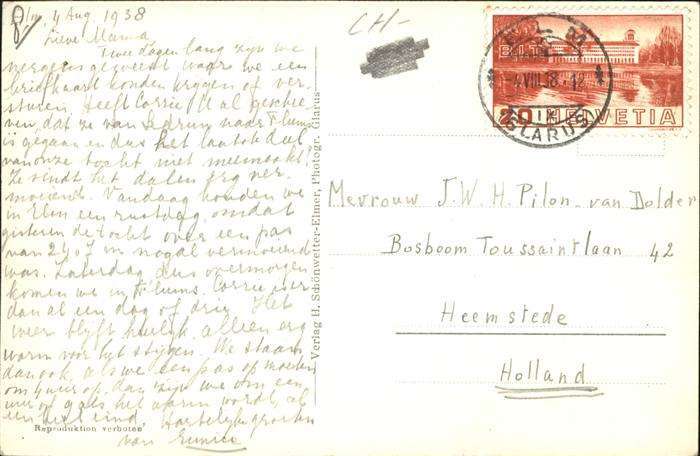 Elm, 4 Aug. 1938
Lieve Mama,
Twee dagen lang zijn we
nergens geweest waar we een
briefkaart konden krijgen of ver-
sturen. Heeft Corrie U al geschre-
ven, dat ze van Sedrun naar Flums
is gegaan en dus het laatste deel
van onze tocht niet meemaakt?
Ze vindt het dalen erg ver-
moeiend. Vandaag houden we
in Elm een rustdag, omdat
gisteren de tocht over een pas
van 2507 m nogal vermoeiend
was. Zaterdag dus overmorgen
komen we in Flums. Corrie is er
dan al een dag of drie. Het
weer blijft heerlijk, alleen erg
warm voor het stijgen. We staan
dan ook, als we een pas op moeten
om 4 uur op, dan zijn we om een
uur of 9 als het warm wordt, al
een heel eind. Hartelijke groeten
van Eunice
Reproduktion verboten
Verlag H. Schönwetter-Elmer, Photogr. Glarus
CH-
BIT
20 HELVETIA
4.VIII.38.-12
(GLARUS)
Mevrouw J.W.H. Pilon-van Dolder
Bosboom Toussaintlaan 42
Heemstede
Holland